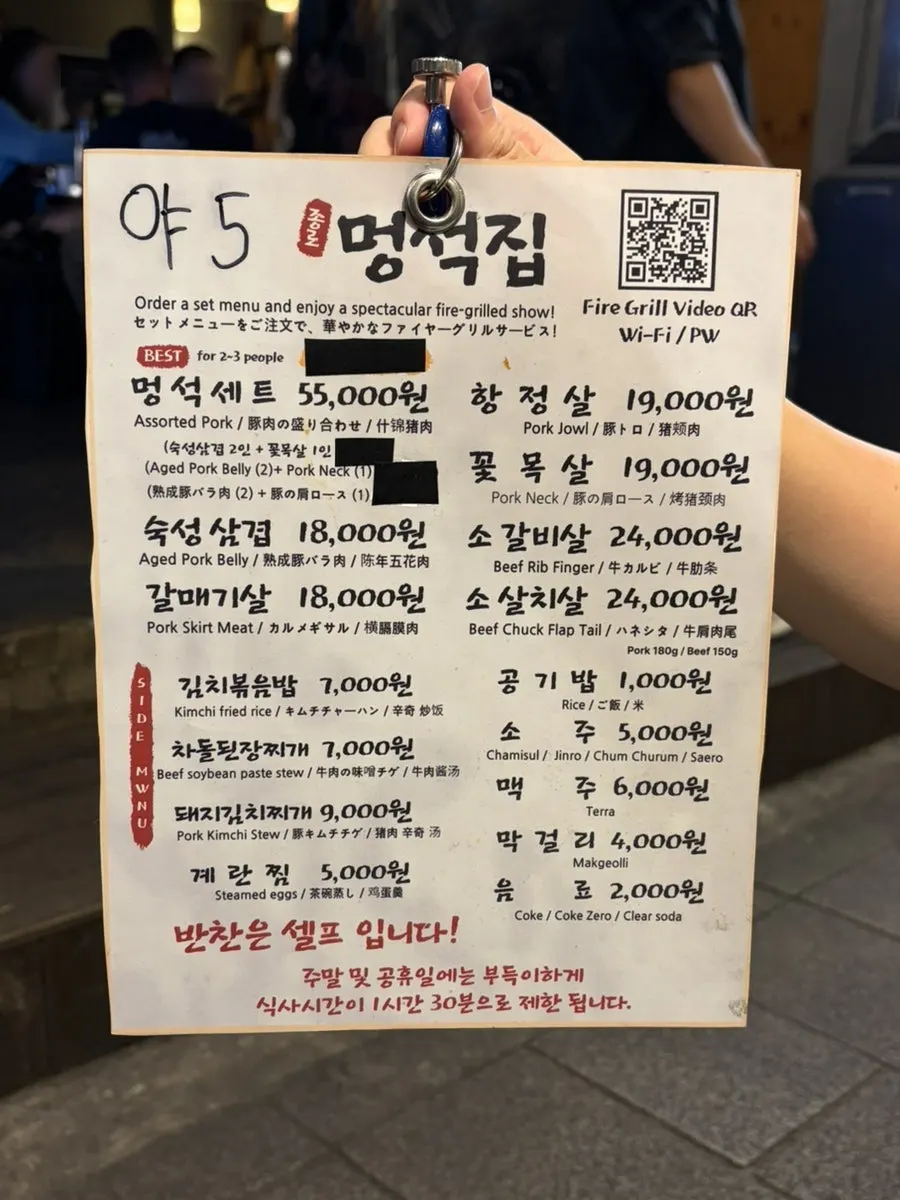 야 5
종로
멍석집
Fire Grill Video QR
Wi-Fi / PW
Order a set menu and enjoy a spectacular fire-grilled show!
セットメニューをご注文で、華やかなファイヤーグリルサービス!
BEST for 2~3 people
멍석세트 55,000원
Assorted Pork / 豚肉の盛り合わせ / 什锦猪肉
(숙성삼겹 2인 + 꽃목살 1인
(Aged Pork Belly (2)+ Pork Neck (1)
(熟成豚バラ肉 (2) + 豚の肩ロース (1)
숙성삼겹 18,000원
Aged Pork Belly / 熟成豚バラ肉 / 陈年五花肉
갈매기살 18,000원
Pork Skirt Meat / カルメギサル / 横膈膜肉
항정살 19,000원
Pork Jowl / 豚トロ / 猪颊肉
꽃목살 19,000원
Pork Neck / 豚の肩ロース / 烤猪颈肉
소갈비살 24,000원
Beef Rib Finger / 牛カルビ / 牛肋条
소살치살 24,000원
Beef Chuck Flap Tail / ハネシタ / 牛肩肉尾
Pork 180g / Beef 150g
SIDE MWNU
김치볶음밥 7,000원
Kimchi fried rice / キムチチャーハン / 辛奇 炒饭
차돌된장찌개 7,000원
Beef soybean paste stew / 牛肉の味噌チゲ / 牛肉酱汤
돼지김치찌개 9,000원
Pork Kimchi Stew / 豚キムチチゲ / 猪肉 辛奇 汤
계란찜 5,000원
Steamed eggs / 茶碗蒸し / 鸡蛋羹
공기밥 1,000원
Rice / ご飯 / 米
소주 5,000원
Chamisul / Jinro / Chum Churum / Saero
맥주 6,000원
Terra
막걸리 4,000원
Makgeolli
음료 2,000원
Coke / Coke Zero / Clear soda
반찬은 셀프 입니다!
주말 및 공휴일에는 부득이하게
식사시간이 1시간 30분으로 제한 됩니다.